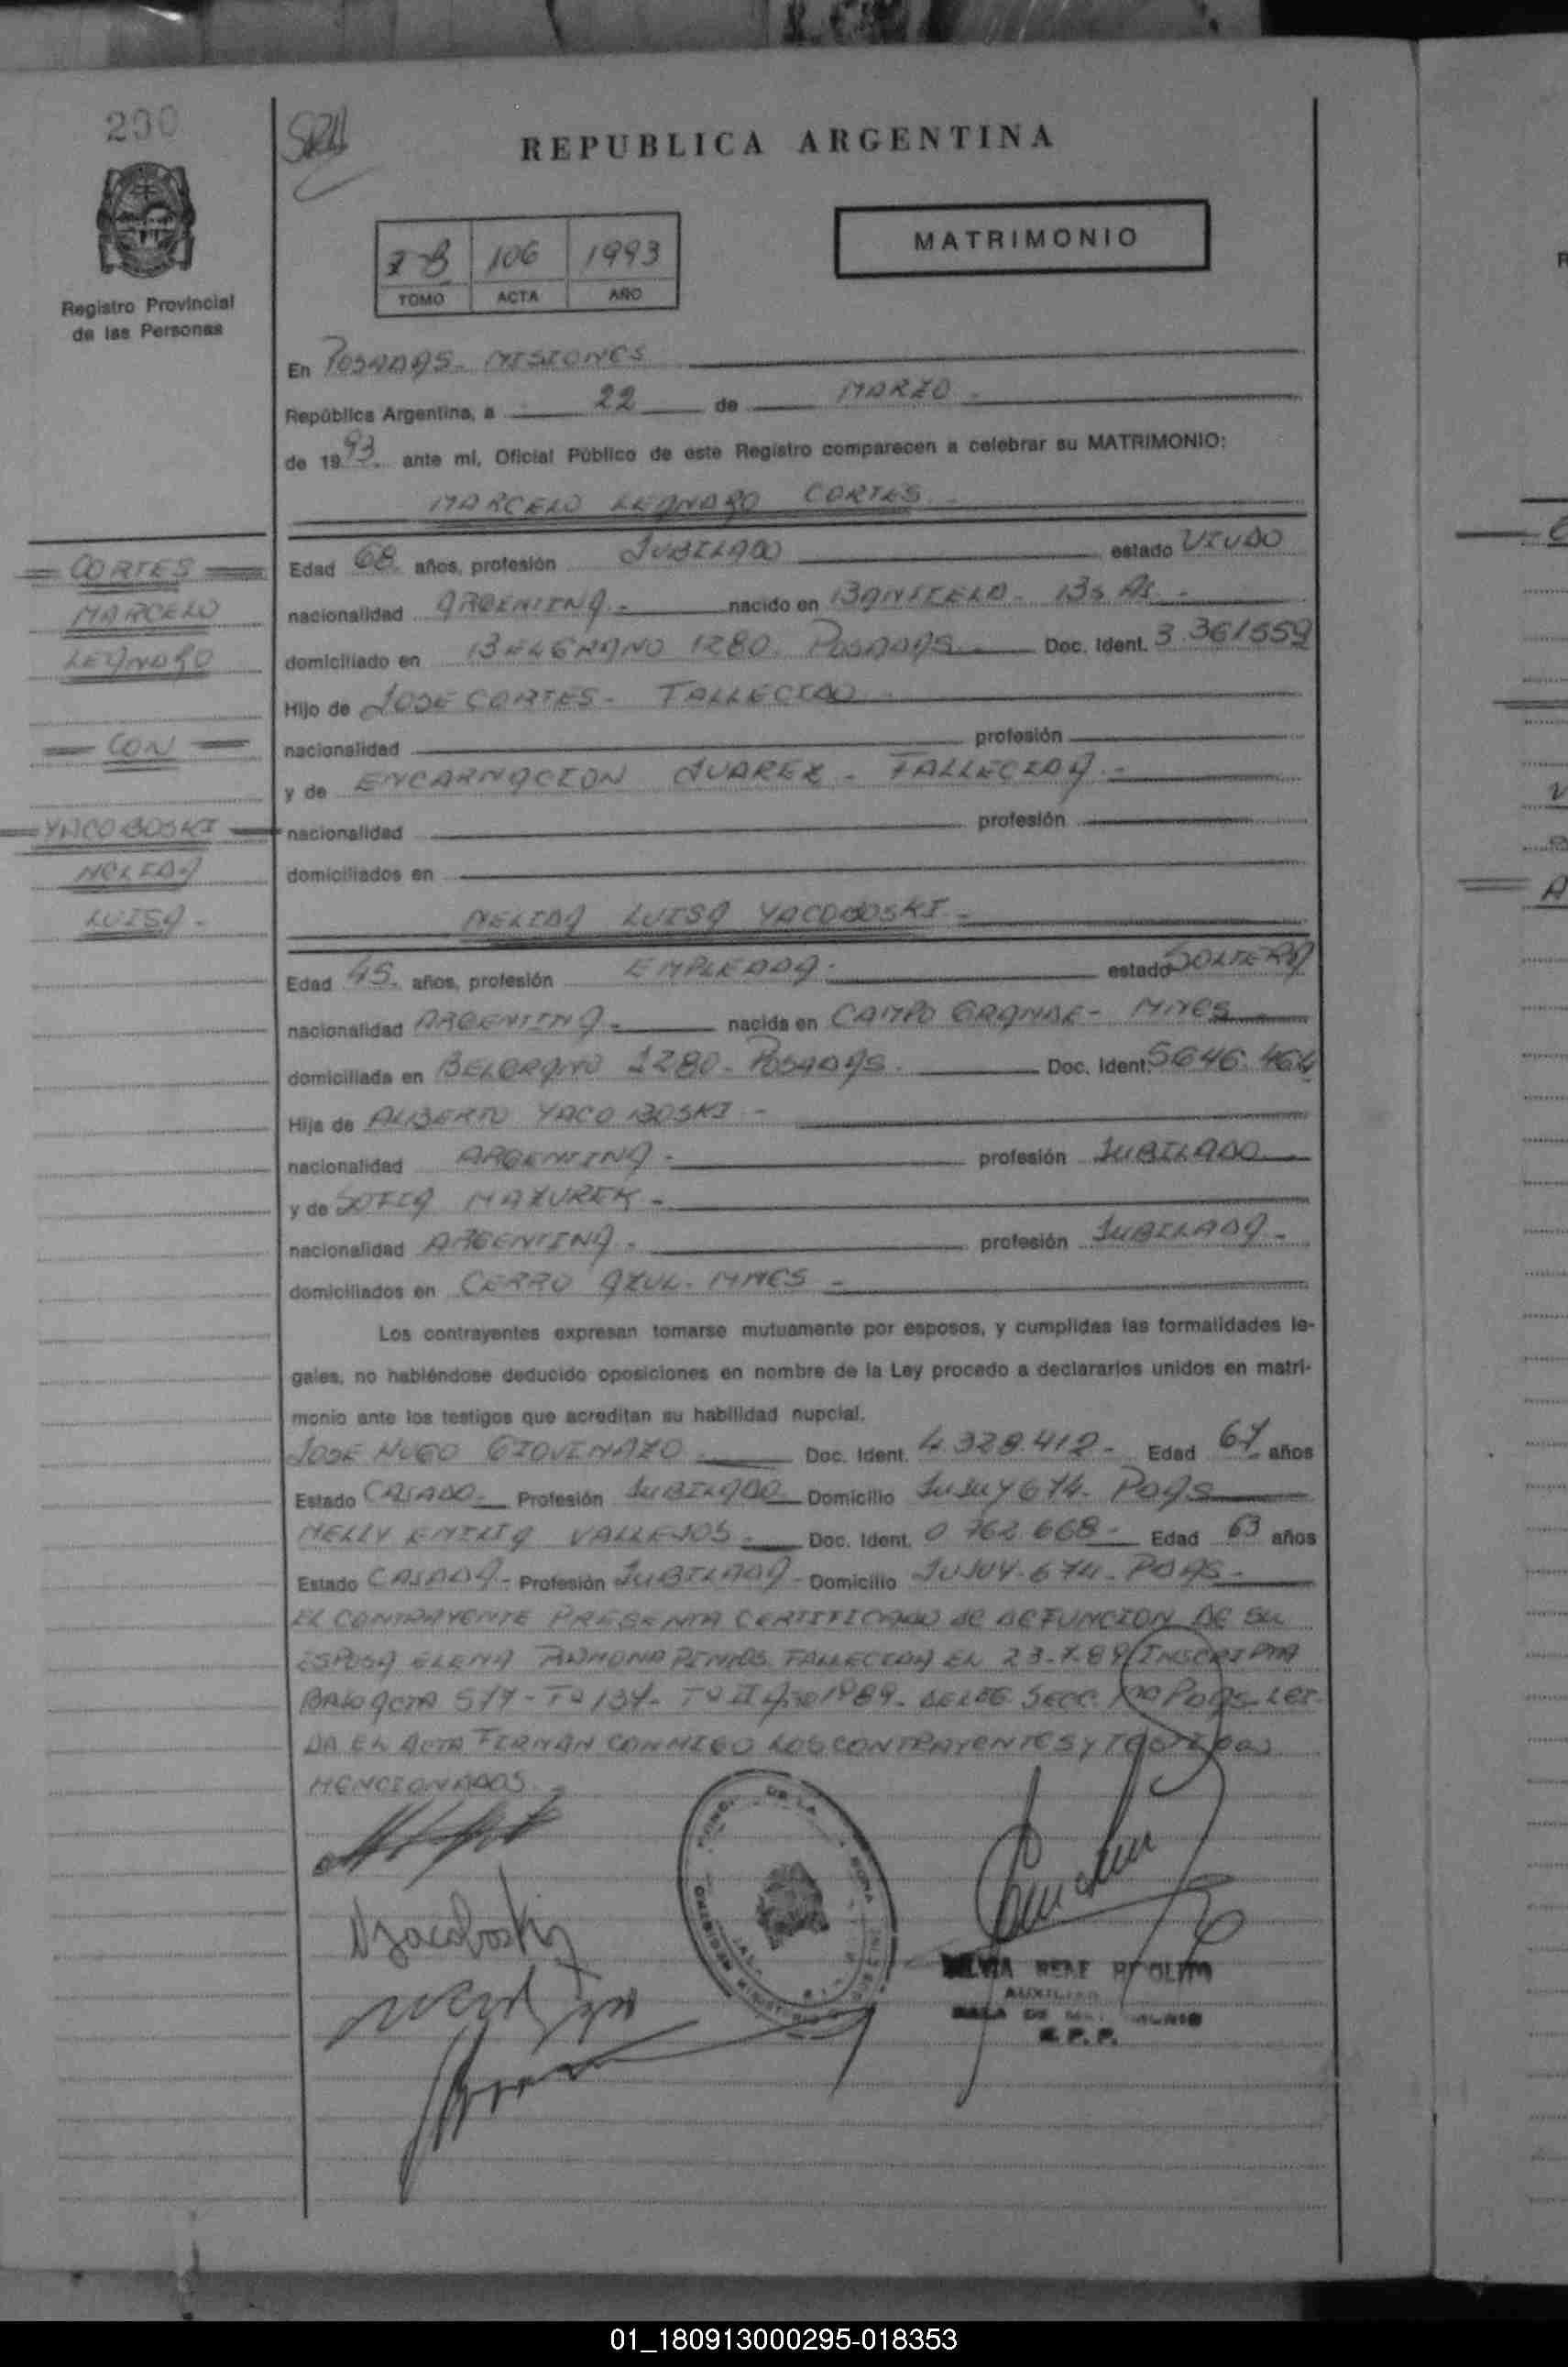 200
REPUBLICA ARGENTINA
MATRIMONIO
106 1993
TOMO ACTA AÑO
Registro Provincial
de las Personas
En POSADAS - MISIONES
República Argentina, a 22 de MARZO -
de 1993. ante mi, Oficial Público de este Registro comparecen a celebrar su MATRIMONIO:
MARCELO LEANDRO CORTES -
CORTES
MARCELO
LEANDRO
CON
YACOBOSKI
NELIDA
LUISA -
Edad 68 años, profesión JUBILADO estado VIUDO
nacionalidad ARGENTINA - nacido en BANFIELD - Bs. As. -
domiciliado en BELGRANO 1280. POSADAS Doc. Ident. 3.361559
Hijo de JOSE CORTES - FALLECIDO
nacionalidad profesión
y de ENCARNACION JUAREZ - FALLECIDA -
nacionalidad profesión
domiciliados en
NELIDA LUISA YACOBOSKI -
Edad 45 años, profesión EMPLEADA - estado SOLTERA
nacionalidad ARGENTINA - nacida en CAMPO GRANDE - MNES
domiciliada en BELGRANO 1280 - POSADAS. Doc. Ident. 5646.464
Hija de ALBERTO YACOBOSKI -
nacionalidad ARGENTINA - profesión JUBILADO
y de SOFIA MAZUREK -
nacionalidad ARGENTINA - profesión JUBILADA -
domiciliados en CERRO AZUL - MNES -
Los contrayentes expresan tomarse mutuamente por esposos, y cumplidas las formalidades le-
gales, no habiéndose deducido oposiciones en nombre de la Ley procedo a declararlos unidos en matri-
monio ante los testigos que acreditan su habilidad nupcial.
JOSE HUGO GIOVINAZO Doc. Ident. 4.328.412 - Edad 67 años
Estado CASADO - Profesión JUBILADO Domicilio JUJUY 674 - PDAS
NELLY EMILIA VALLEJOS - Doc. Ident. 0 762 668 - Edad 63 años
Estado CASADA - Profesión JUBILADA - Domicilio JUJUY - 674 - PDAS -
EL CONTRAYENTE PRESENTA CERTIFICADO DE DEFUNCION DE SU
ESPOSA ELENA RAMONA FALLECIDA EL 23-7-89 INSCRIPTA
BAJO ACTA 577 - Tº II Año 1989 - SECC. PDAS LEI-
DA EL ACTA FIRMAN CONMIGO LOS CONTRAYENTES Y TESTIGOS
MENCIONADOS -
AUXILIAR
SALA DE
01_180913000295-018353